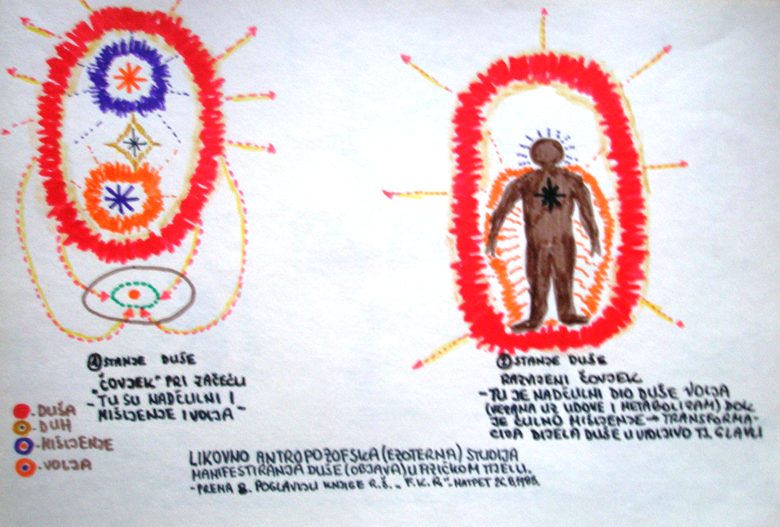 ① STANJE DUŠE
"ČOVJEK" PRI ZAČEĆU
- TU SU NADČULNI I
MIŠLJENJE I VOLJA -
- DUŠA
- DUH
- MIŠLJENJE
- VOLJA
② STANJE DUŠE
RAZVIJENI ČOVJEK
- TU JE NADČULNI DIO DUŠE VOLJA
(VEZANA UZ UDOVE I METABOLIZAM) DOK
JE ČULNO MIŠLJENJE → TRANSFORMA-
CIJA DIJELA DUŠE U VIDLJIVO TJ. GLAVU
LIKOVNO ANTROPOZOFSKA (EZOTERNA) STUDIJA
MANIFESTIRANJA DUŠE (OBJAVA) U FIZIČKOM TIJELU.
- PREMA 8. POGLAVLJU KNJIGE R.Š. "F.K.R."